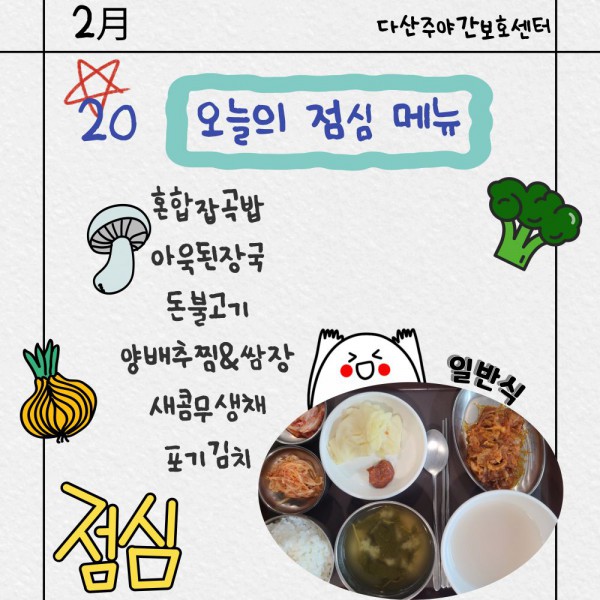 2月
다산주야간보호센터
20
오늘의 점심 메뉴
혼합잡곡밥
아욱된장국
돈불고기
양배추찜&쌈장
새콤무생채
포기김치
일반식
점심